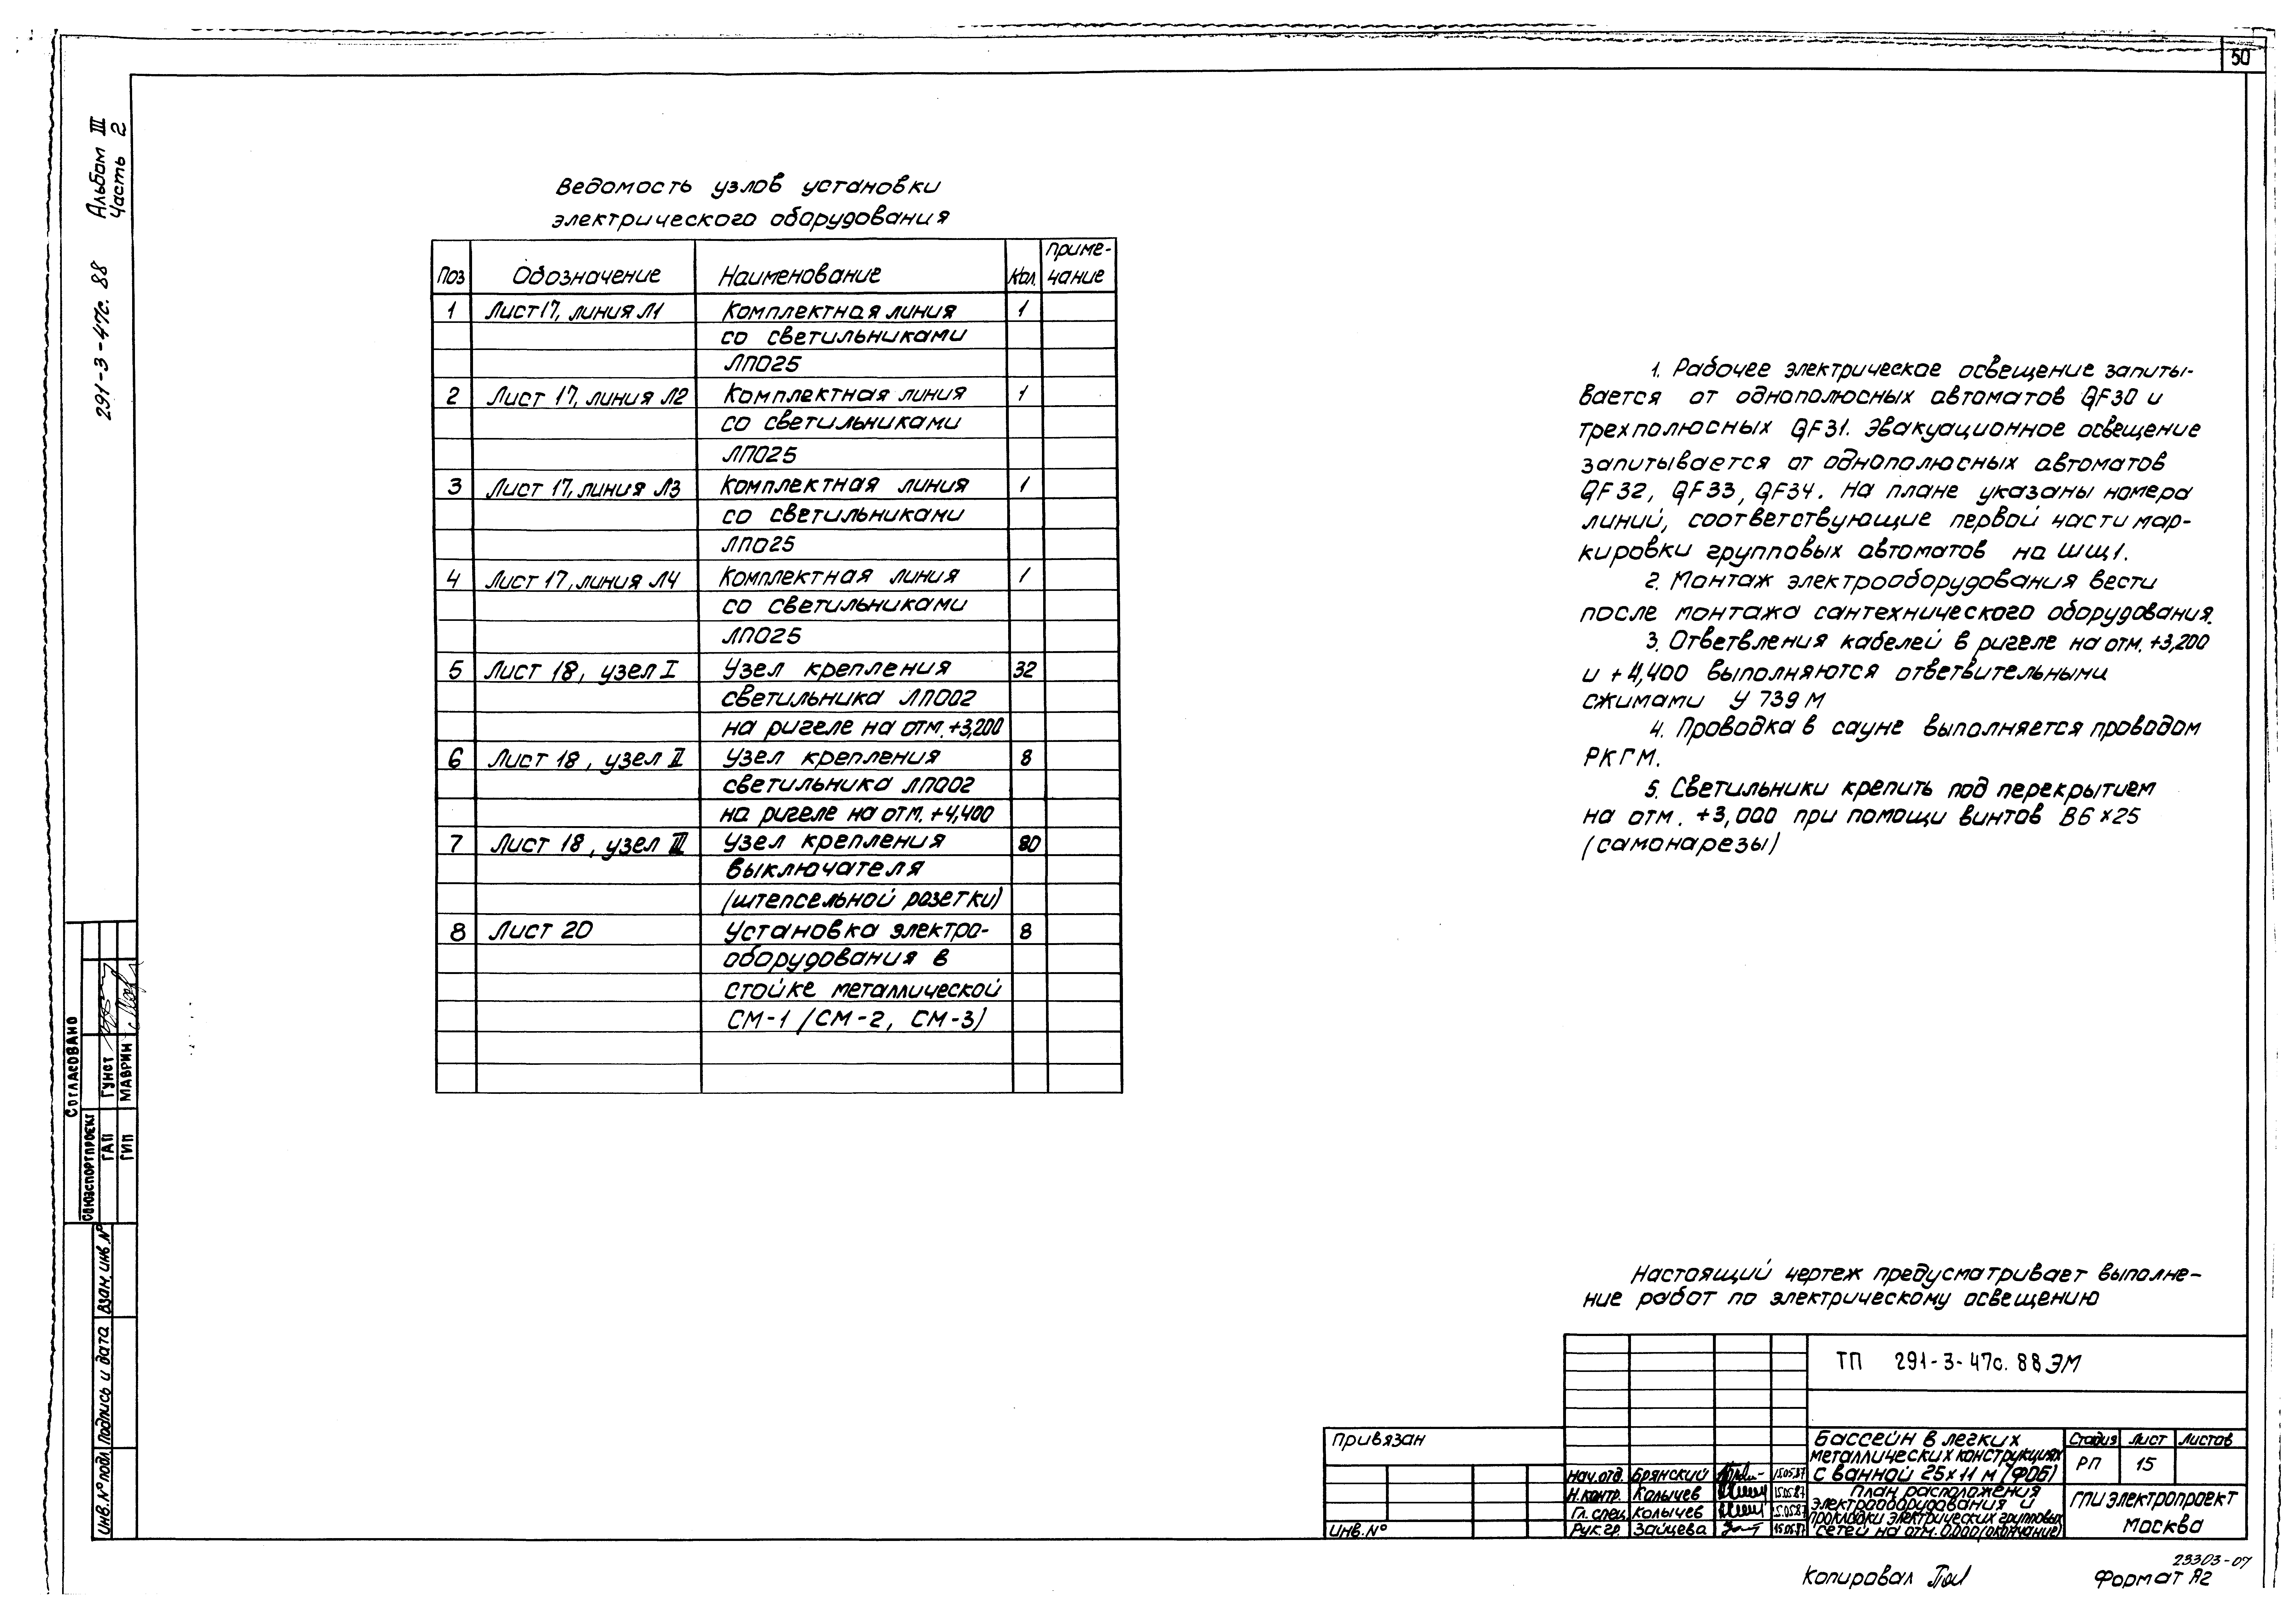 50
Альбом III
Часть 2
291-3-47с. 88
Ведомость узлов установки
электрического оборудования
Поз Обозначение Наименование Кол. Приме-
чание
1 Лист 17, линия Л1 Комплектная линия 1
со светильниками
ЛПО25
2 Лист 17, линия Л2 Комплектная линия 1
со светильниками
ЛПО25
3 Лист 17, линия Л3 Комплектная линия 1
со светильниками
ЛПО25
4 Лист 17, линия Л4 Комплектная линия 1
со светильниками
ЛПО25
5 Лист 18, узел I Узел крепления 32
светильника ЛПО02
на ригеле на отм. +3,200
6 Лист 18, узел II Узел крепления 8
светильника ЛПО02
на ригеле на отм. +4,400
7 Лист 18, узел III Узел крепления 80
выключателя
(штепсельной розетки)
8 Лист 20 Установка электро- 8
оборудования в
стойке металлической
СМ-1 (СМ-2, СМ-3)
1. Рабочее электрическое освещение запиты-
вается от однополюсных автоматов QF30 и
трехполюсных QF31. Эвакуационное освещение
запитывается от однополюсных автоматов
QF32, QF33, QF34. На плане указаны номера
линий, соответствующие первой части мар-
кировки групповых автоматов на ШЩ1.
2. Монтаж электрооборудования вести
после монтажа сантехнического оборудования.
3. Ответвления кабелей в ригеле на отм. +3,200
и +4,400 выполняются ответвительными
сжимами У 739 М
4. Проводка в сауне выполняется проводом
РКГМ.
5. Светильники крепить под перекрытием
на отм. +3,000 при помощи винтов В6×25
(самонарезы)
Настоящий чертеж предусматривает выполне-
ние работ по электрическому освещению
Согласовано
Союзспортпроект
ГАП Гунст
ГИП Маврин
Взам. инв. №
Подпись и дата
Инв. № подл.
ТП 291-3-47с. 88 ЭМ
Привязан
Инв. №
Нач. отд. Брянский 15.05.87
Н. контр. Колычев 15.05.87
Гл. спец. Колычев 15.05.87
Рук. гр. Зайцева 15.05.87
Бассейн в легких
металлических конструкциях
с ванной 25×11 м (ФОБ)
Стадия Лист Листов
РП 15
План расположения
электрооборудования и
прокладки электрических групповых
сетей на отм. 0.000 (окончание)
ГПИ Электропроект
Москва
23303-07
Копировал
Формат А2